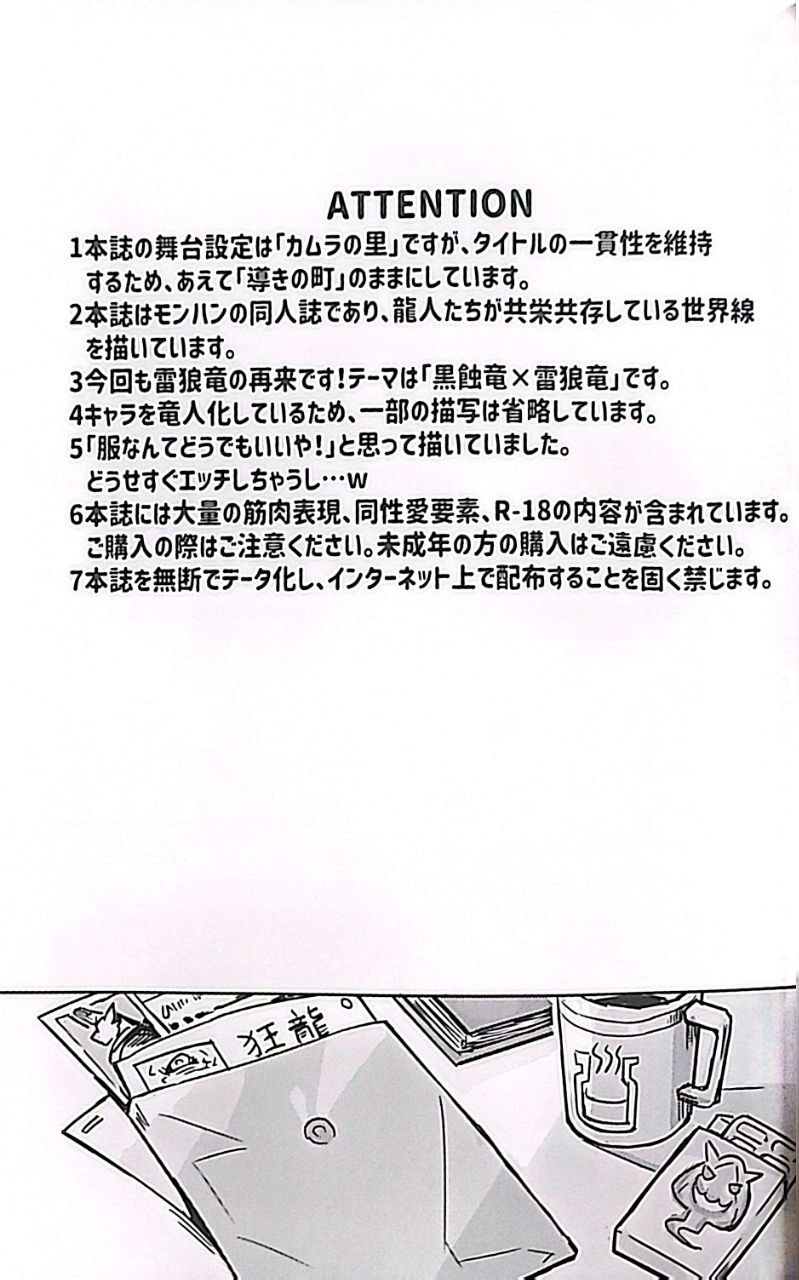 ATTENTION
1本誌の舞台設定は「カムラの里」ですが、タイトルの一貫性を維持
するため、あえて「導きの町」のままにしています。
2本誌はモンハンの同人誌であり、龍人たちが共栄共存している世界線
を描いています。
3今回も雷狼竜の再来です!テーマは「黒蝕竜×雷狼竜」です。
4キャラを竜人化しているため、一部の描写は省略しています。
5「服なんてどうでもいいや!」と思って描いていました。
どうせすぐエッチしちゃうし…w
6本誌には大量の筋肉表現、同性愛要素、R-18の内容が含まれています。
ご購入の際はご注意ください。未成年の方の購入はご遠慮ください。
7本誌を無断でデータ化し、インターネット上で配布することを固く禁じます。
狂龍